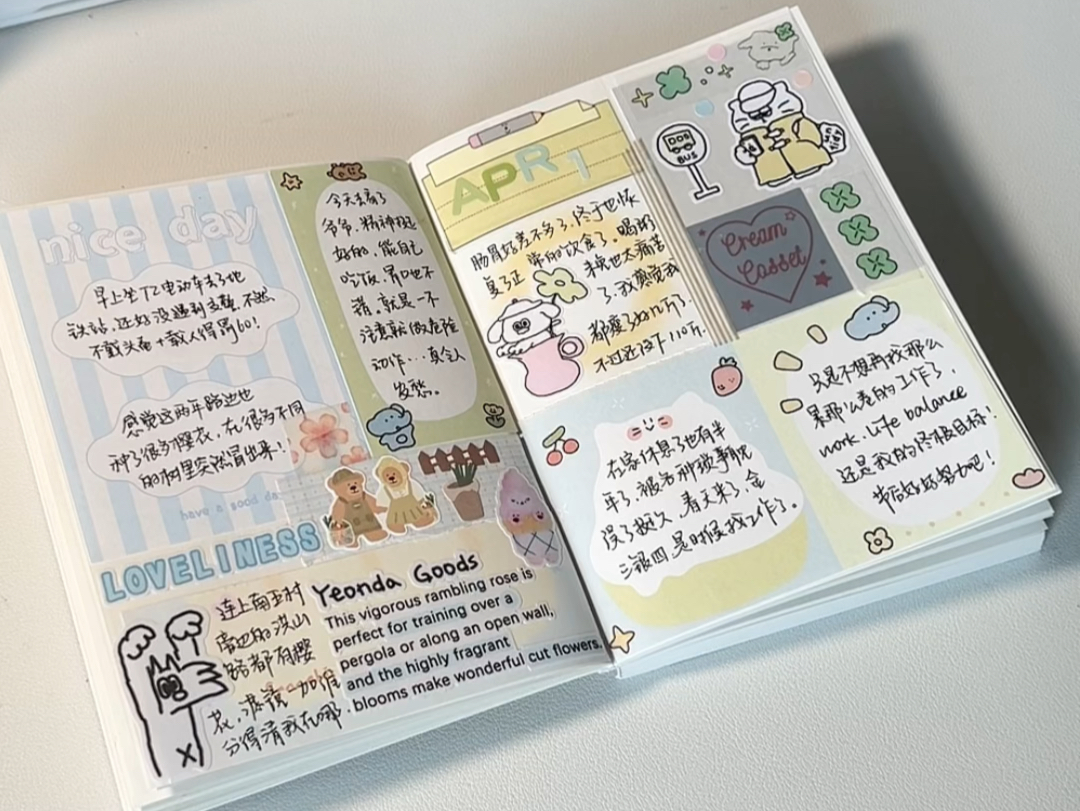 nice day
早上坐TZ电动车去了地
铁站，还好没遇到交警，不然
不戴头盔+载人得罚60！
感觉这两年路边也
种了很多樱花，在很多不同
的树里突然冒出来！
have a good da
今天去看了
爷爷，精神挺
好的，能自己
吃饭，胃口也不
错，就是一不
注意就做危险
动作...真令人
发愁。
LOVELINESS
连上南玉村
旁边的洪山
路都有樱
花，滤镜一加谁
分得清我在哪．
Yeonda Goods
This vigorous rambling rose is
perfect for training over a
pergola or along an open wall,
and the highly fragrant
blooms make wonderful cut flowers.
APR 1
肠胃好差不多了，终于也恢
复了正常的饮食了，喝粥
真的也太痛苦
了，我感觉我
都瘦了好几斤了．
不过还没下110斤．
BUS
Cream
Cosset
在家休息了也有半
年了，被各种琐事耽
误了挺久，春天来了，金
三银四，是时候找工作了．
只是不想再找那么
累那么卷的工作了，
work. life balance
还是我的终极目标！
节后好好努力吧！